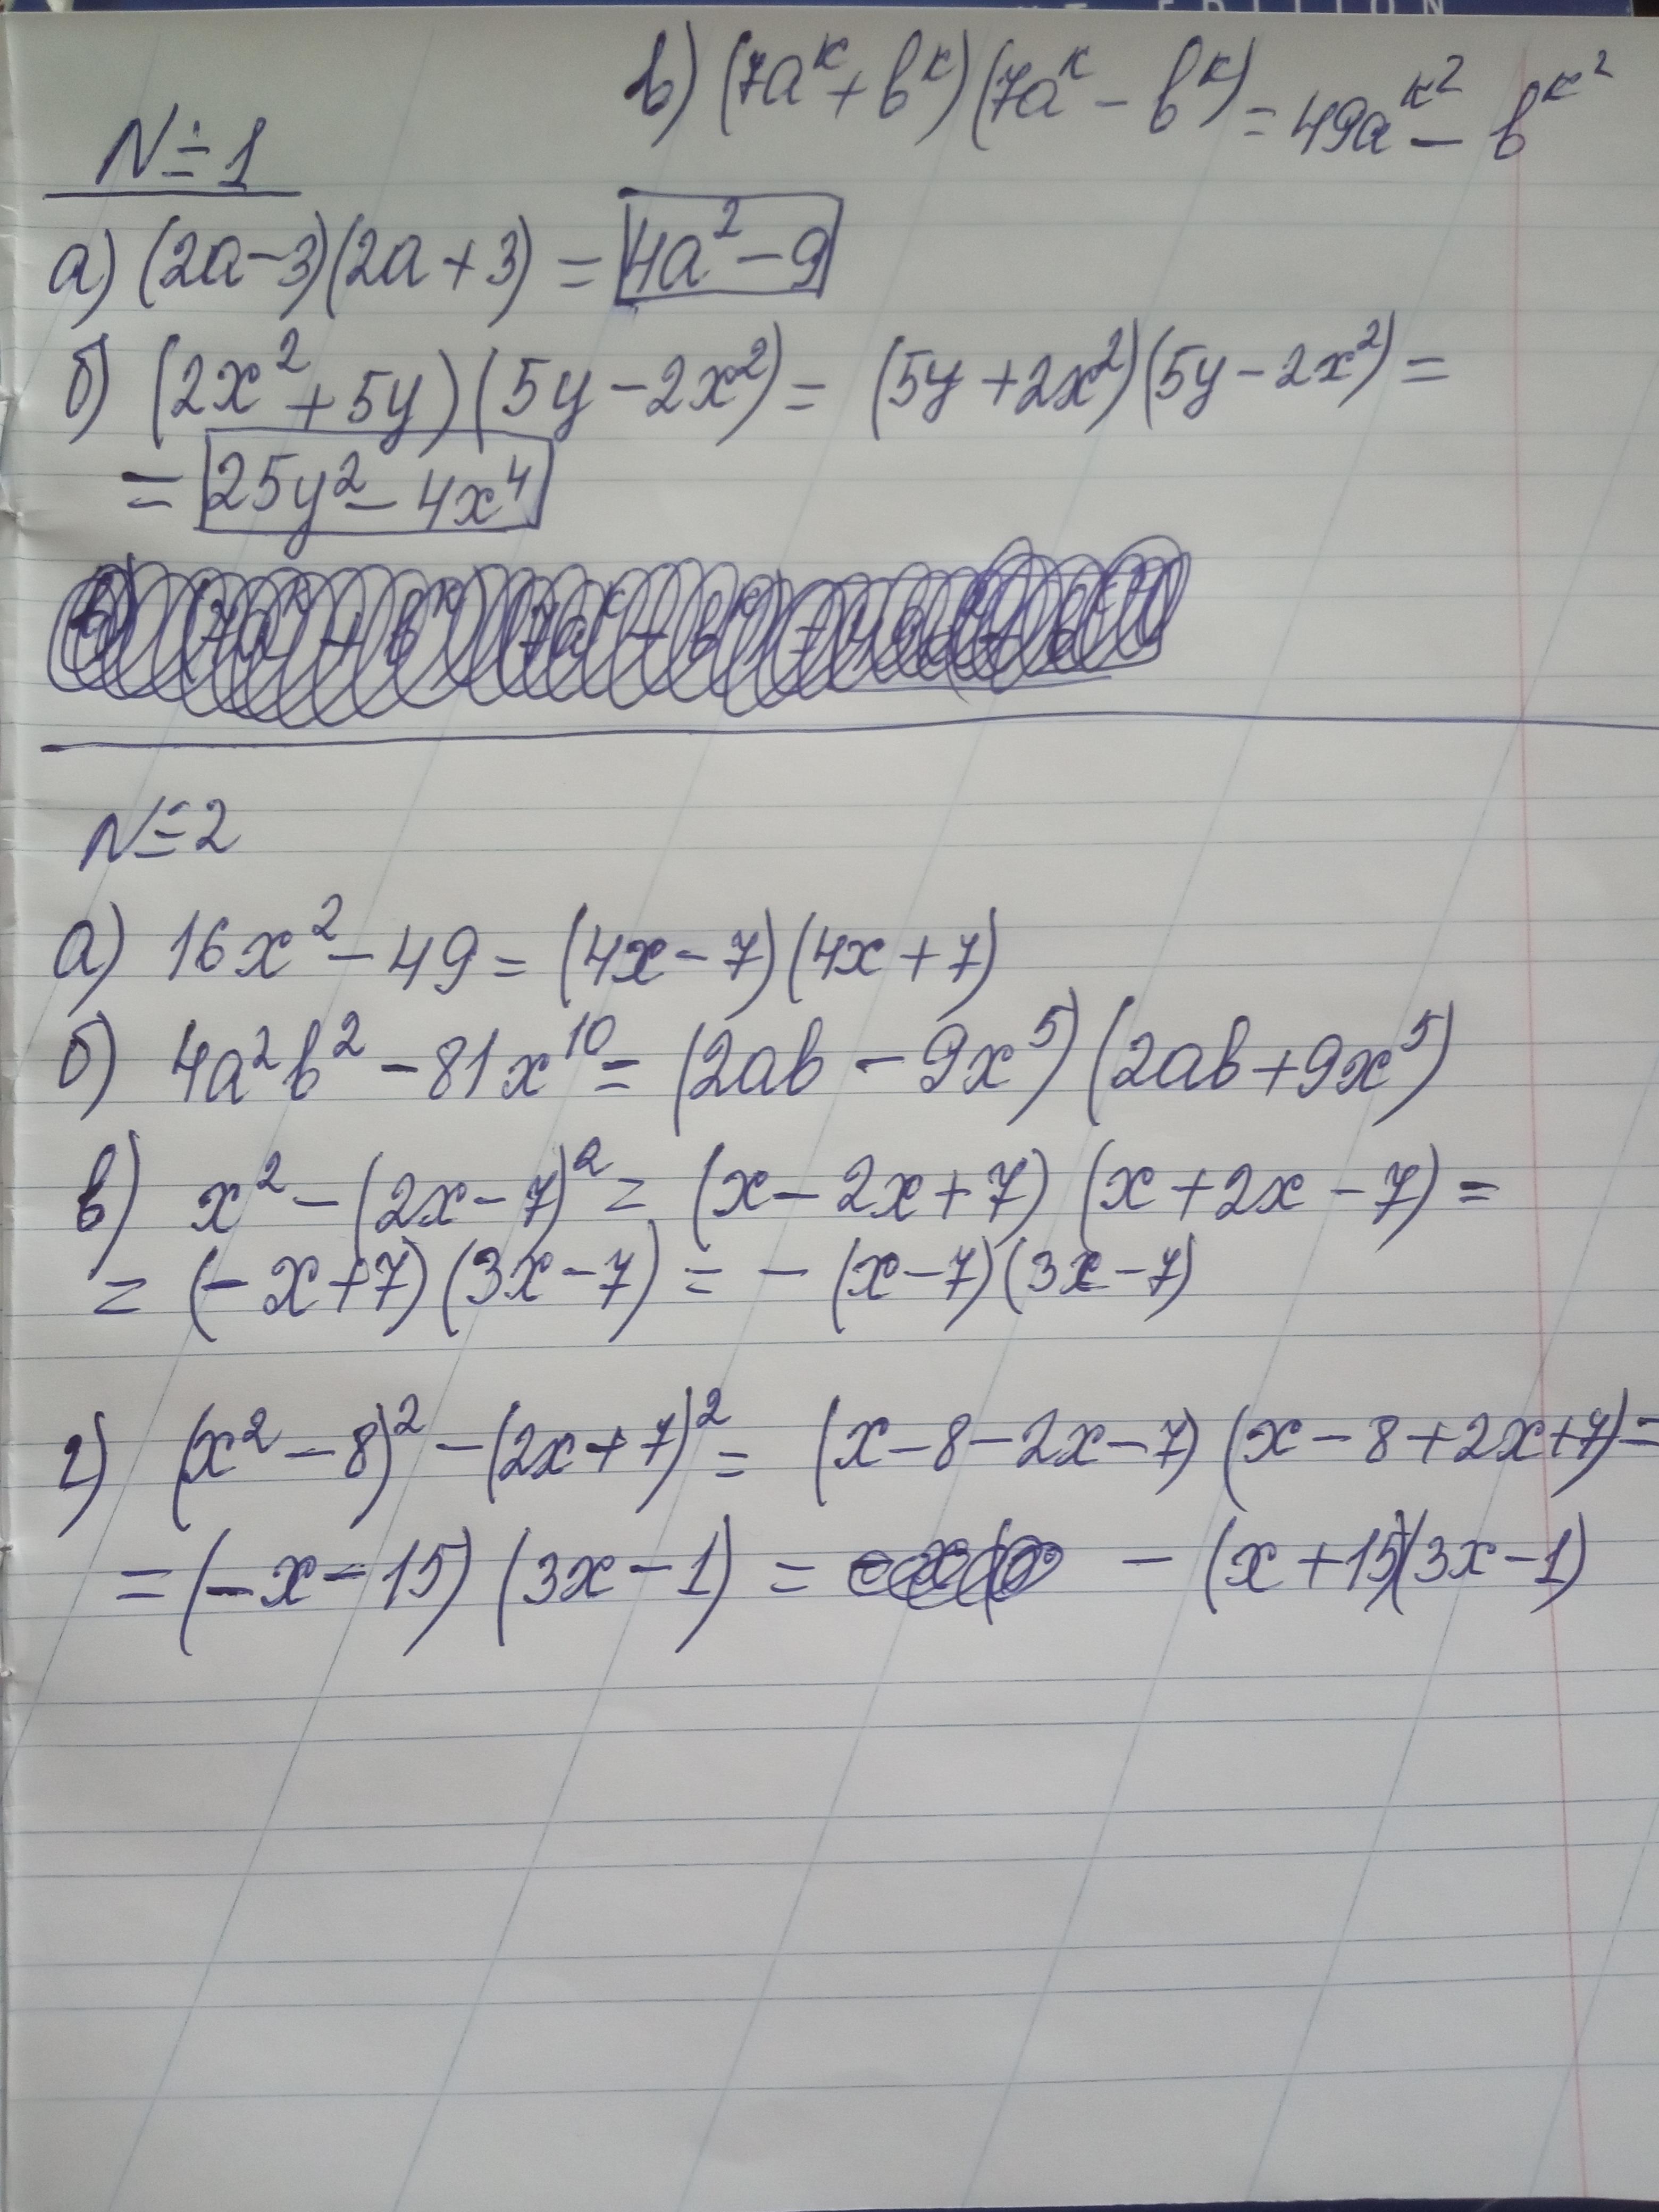 EDITION
в) (7aᵏ + bᵏ)(7aᵏ - bᵏ) = 49aᵏ² - bᵏ²
№1
а) (2a-3)(2a+3) = 4a² - 9
б) (2x² + 5y)(5y - 2x²) = (5y + 2x²)(5y - 2x²) =
= 25y² - 4x⁴
№2
а) 16x² - 49 = (4x - 7)(4x + 7)
б) 4a²b² - 81x¹⁰ = (2ab - 9x⁵)(2ab + 9x⁵)
в) x² - (2x - 7)² = (x - 2x + 7)(x + 2x - 7) =
= (-x + 7)(3x - 7) = - (x - 7)(3x - 7)
г) (x² - 8)² - (2x + 7)² = (x - 8 - 2x - 7)(x - 8 + 2x + 7) =
= (-x - 15)(3x - 1) = - (x + 15)(3x - 1)